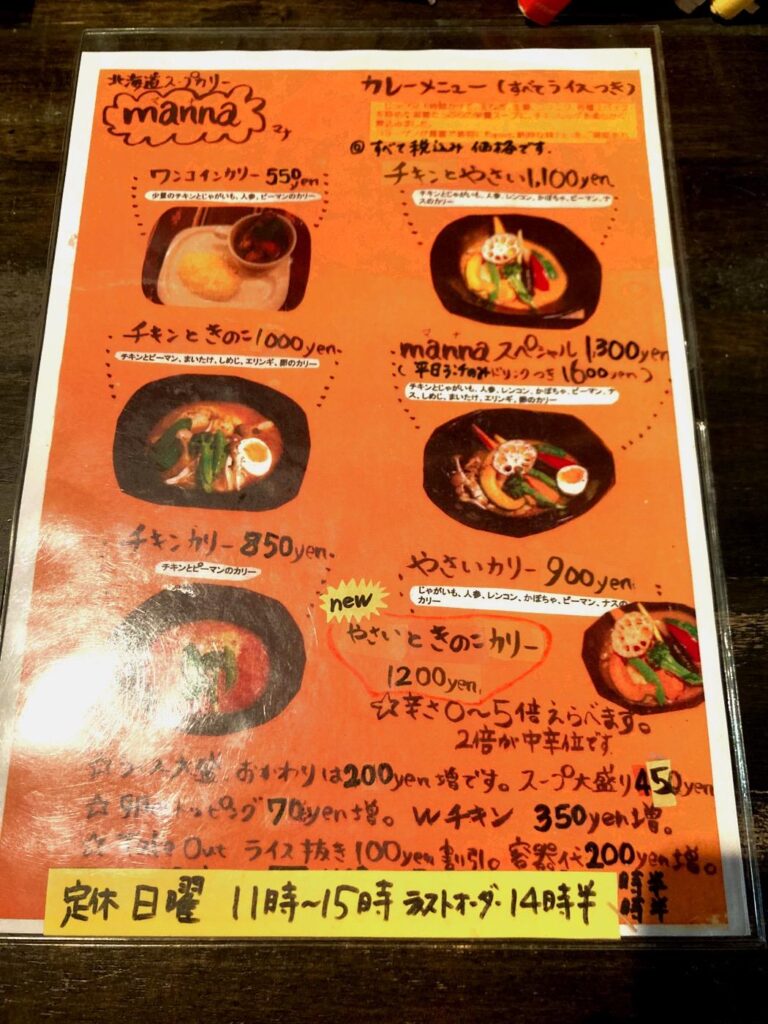 北海道スープカリー
manna
マナ
カレーメニュー(すべてライスつき)
◎すべて税込み価格です.
ワンコインカリー 550yen
少量のチキンとじゃがいも、人参、ピーマンのカリー
チキンとやさい1,100yen
チキンとじゃがいも、人参、レンコン、かぼちゃ、ピーマン、ナ
スのカリー
チキンときのこ1000yen
チキンとピーマン、まいたけ、しめじ、エリンギ、卵のカリー
マナ
mannaスペシャル 1,300yen
(平日ランチのみドリンクつき1600yen)
チキンとじゃがいも、人参、レンコン、かぼちゃ、ピーマン、ナ
ス、しめじ、まいたけ、エリンギ、卵のカリー
チキンカリー 850yen
チキンとピーマンのカリー
やさいカリー 900yen
じゃがいも、人参、レンコン、かぼちゃ、ピーマン、ナスの
カリー
new
やさいときのこカリー
1200yen
☆辛さ0〜5倍えらべます。
2倍が中辛位です
大盛 おかわりは200yen増です。スープ大盛り450yen
☆卵トッピング70yen増。Wチキン 350yen増。
☆ Out ライス抜き100yen割引。容器代200yen増。
時半
時半
定休 日曜 11時〜15時 ラストオーダー14時半